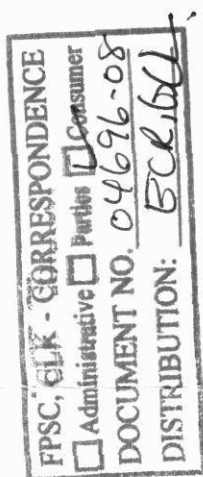 FPSC, CLK - CORRESPONDENCE
☐ Administrative ☐ Parties ☑ Consumer
DOCUMENT NO. 04696-08
DISTRIBUTION: